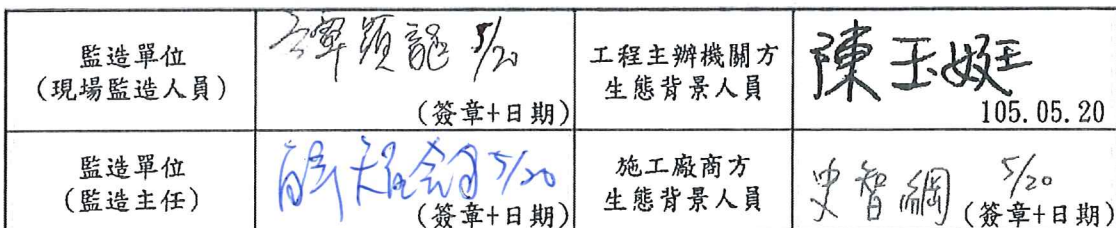 監造單位
(現場監造人員)
5/20
(簽章+日期)
工程主辦機關方
生態背景人員
陳玉娗
105.05.20
監造單位
(監造主任)
5/20
(簽章+日期)
施工廠商方
生態背景人員
史智綱 5/20
(簽章+日期)